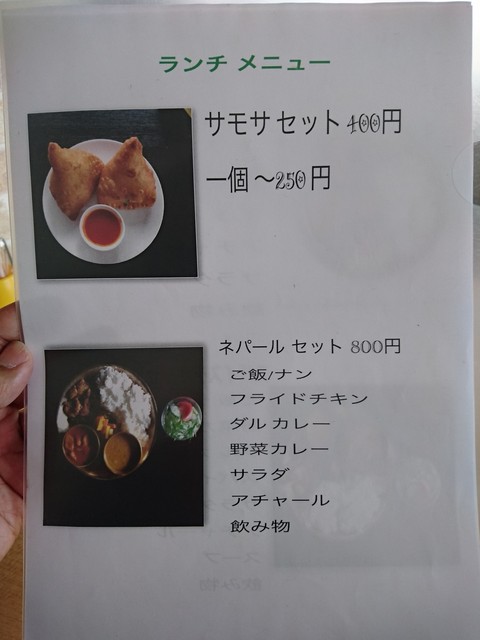 ランチ メニュー
サモサ セット 400円
一個 ～250 円
ネパール セット 800円
ご飯/ナン
フライドチキン
ダル カレー
野菜カレー
サラダ
アチャール
飲み物